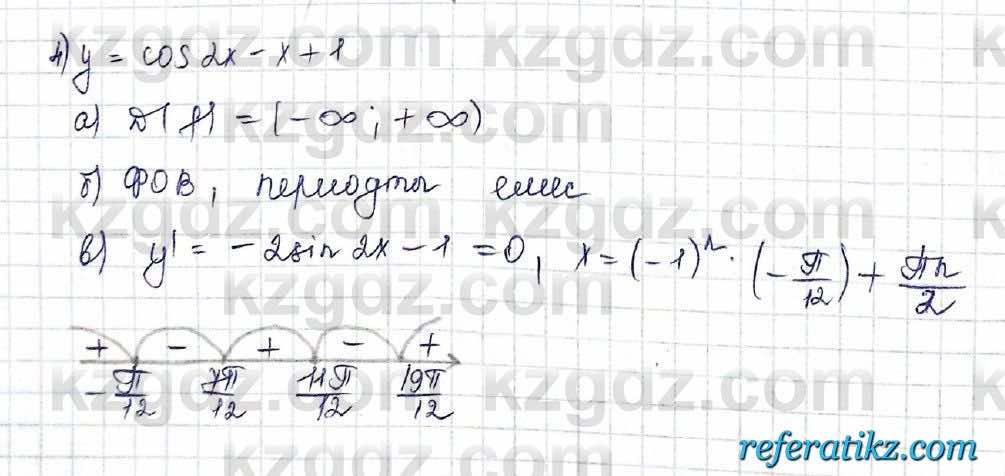 4) y = cos 2x - x + 1
а) D(f) = (-∞; +∞)
б) ФОВ, периодты емес
в) y' = -2sin 2x - 1 = 0, x = (-1)^n · (-π/12) + πn/2
+ - + - +
-π/12 7π/12 11π/12 19π/12
kzgdz.com
referatikz.com